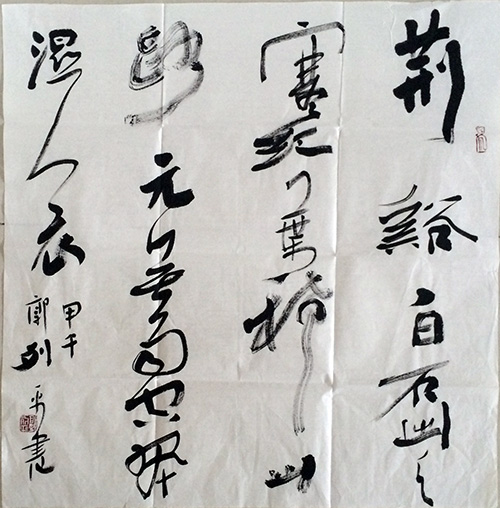 荆谿白石出天
寒红葉稀山
路元無雨空翠
湿人衣
甲午
郭列平書